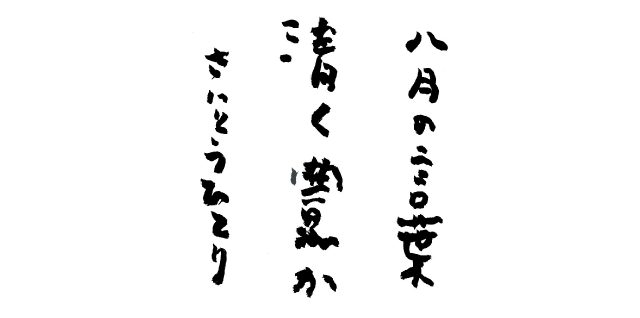 八月の言葉
清く豊か
さいとうひとり